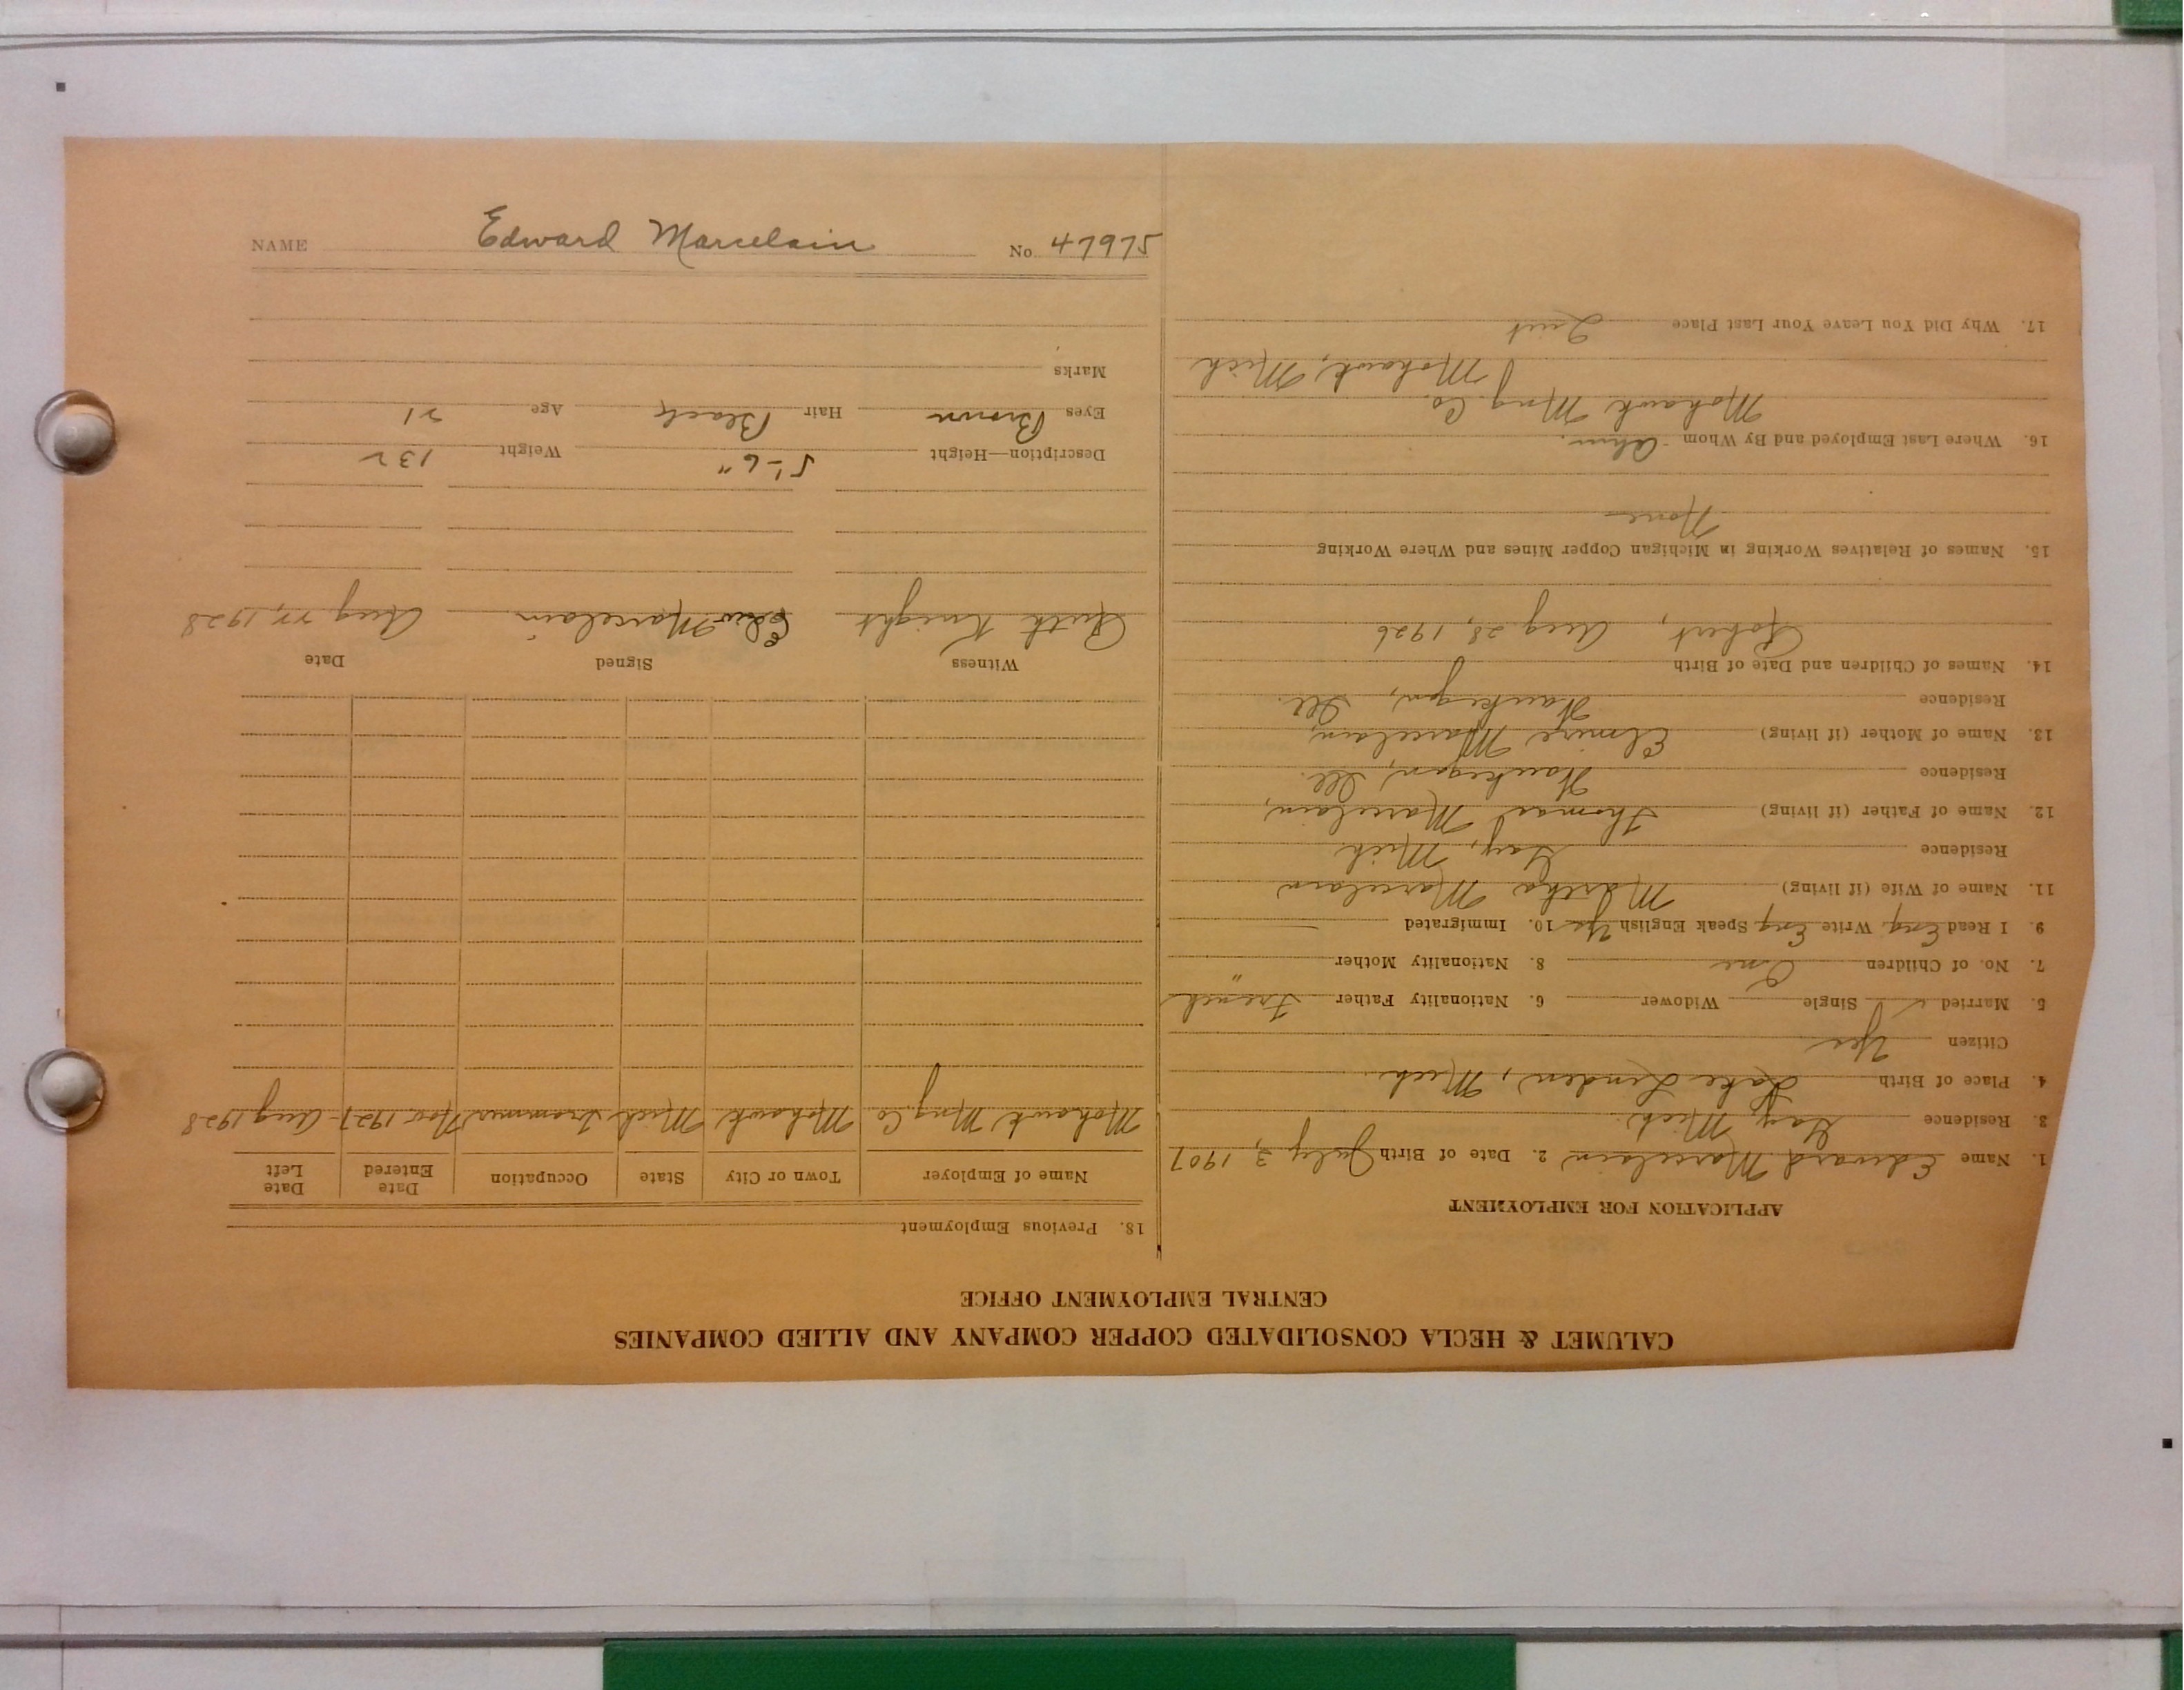 NAME Edward Marcelain No. 47975
CALUMET & HECLA CONSOLIDATED COPPER COMPANY AND ALLIED COMPANIES
CENTRAL EMPLOYMENT OFFICE
APPLICATION FOR EMPLOYMENT
1. Name Edward Marcelain 2. Date of Birth July 3, 1907
3. Residence Gay, Mich.
4. Place of Birth Lake Linden, Mich.
Citizen Yes
5. Married ✓ Single Widower 6. Nationality Father French
7. No. of Children One 8. Nationality Mother "
9. I Read Eng. Write Eng Speak English Yes 10. Immigrated
11. Name of Wife (if living) Martha Marcelain
Residence Gay, Mich
12. Name of Father (if living) Thomas Marcelain,
Residence Waukegan, Ill.
13. Name of Mother (if living) Elmire Marcelain,
Residence Waukegan, Ill.
14. Names of Children and Date of Birth
Robert, Aug 28, 1926
15. Names of Relatives Working in Michigan Copper Mines and Where Working
None
16. Where Last Employed and By Whom
Mohawk Mng. Co.
Mohawk, Mich
17. Why Did You Leave Your Last Place Quit
18. Previous Employment
Name of Employer Town or City State Occupation Date Entered Date Left
Mohawk Mng Co Mohawk Mich Trammer Nov 1927 - Aug 1928
Witness Signed Date
Ruth Knight Edw. Marcelain Aug 22, 1928
Description—Height 5'-6" Weight 132
Eyes Brown Hair Black Age 21
Marks